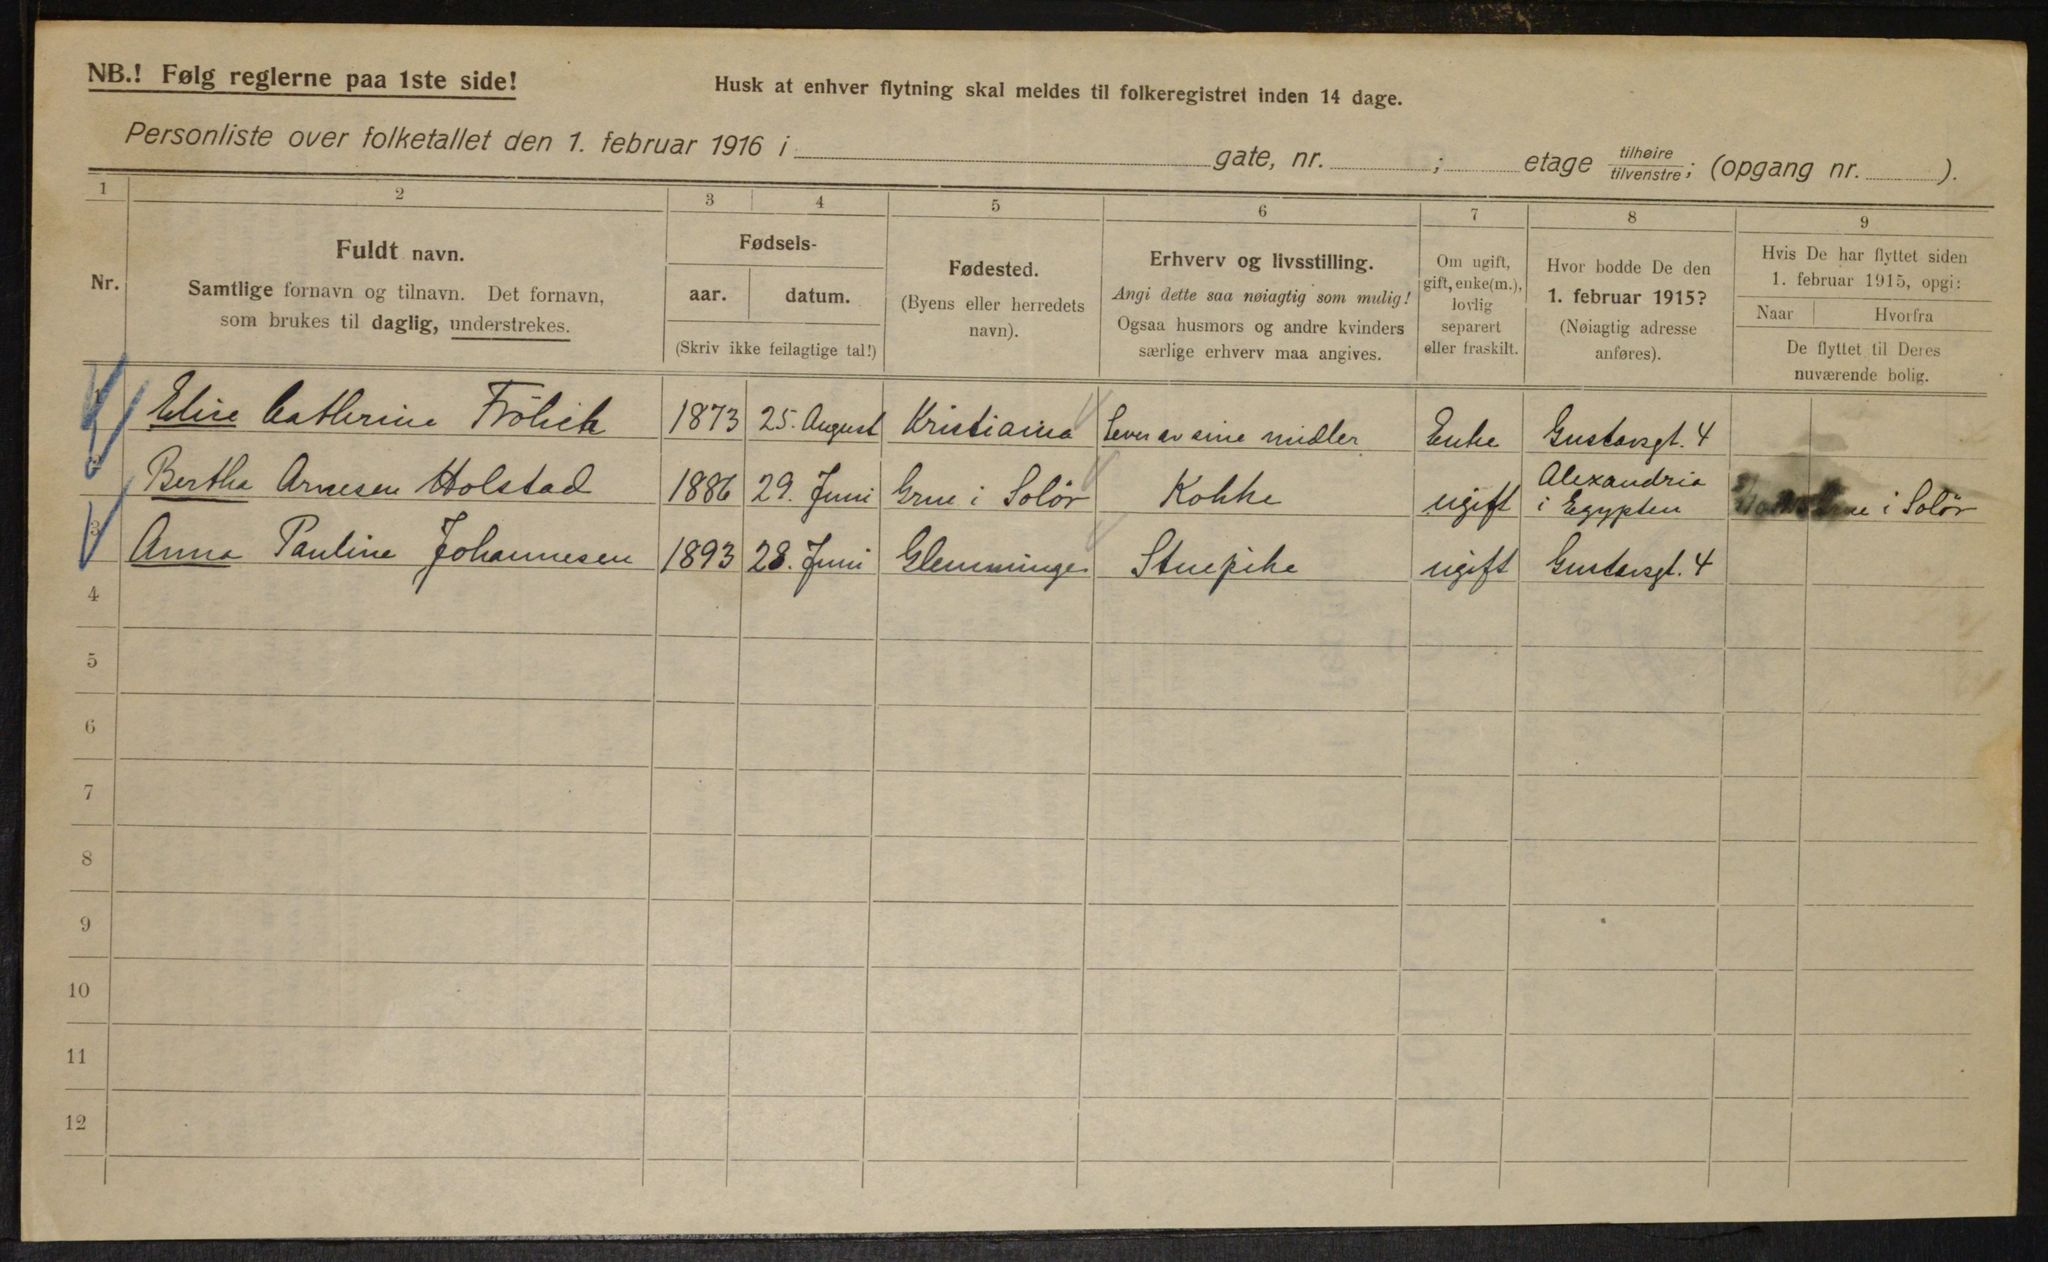 NB.! Følg reglerne paa 1ste side!
Husk at enhver flytning skal meldes til folkeregistret inden 14 dage.
Personliste over folketallet den 1. februar 1916 i gate, nr. ; etage tilhøire tilvenstre; (opgang nr. ).
1 2 3 4 5 6 7 8 9
Nr.
Fuldt navn.
Samtlige fornavn og tilnavn. Det fornavn,
som brukes til daglig, understrekes.
Fødsels-
aar. datum.
(Skriv ikke feilagtige tal!)
Fødested.
(Byens eller herredets
navn).
Erhverv og livsstilling.
Angi dette saa nøiagtig som mulig!
Ogsaa husmors og andre kvinders
særlige erhverv maa angives.
Om ugift,
gift, enke(m.),
lovlig
separert
eller fraskilt.
Hvor bodde De den
1. februar 1915?
(Nøiagtig adresse
anføres).
Hvis De har flyttet siden
1. februar 1915, opgi:
Naar Hvorfra
De flyttet til Deres
nuværende bolig.
Elise Catherine Frölich 1873 25. August Kristiania Lever av sine midler Enke Gustavsgt. 4
Bertha Arnesen Holstad 1886 29. Juni Grue i Solör Kokke ugift Alexandria
i Egypten Grue i Solör
3 Anna Pauline Johannesen 1893 28. Juni Glemminge Stuepike ugift Gustavsgt. 4
4
5
6
7
8
9
10
11
12